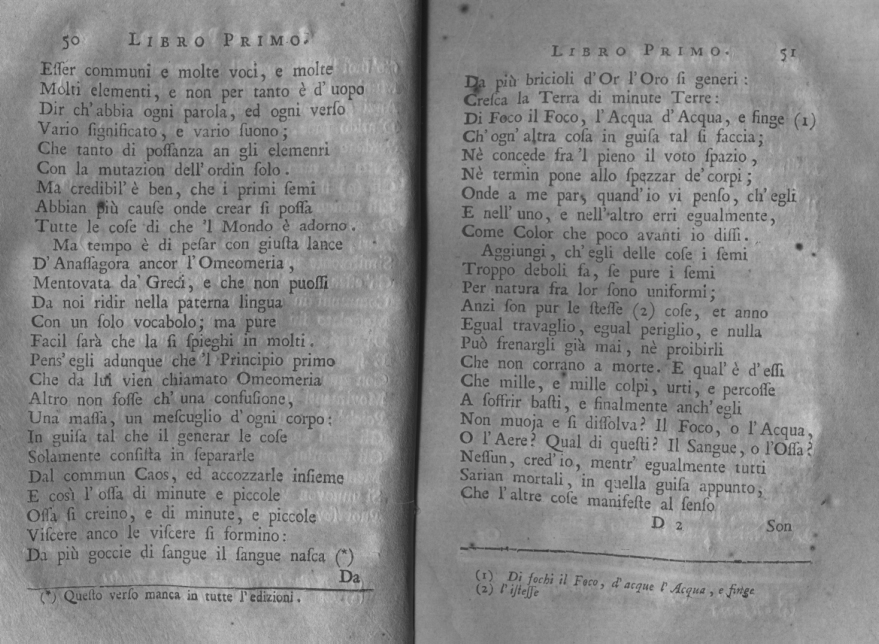 50 LIBRO PRIMO.
Eſſer communi e molte voci, e molte
Molti elementi, e non per tanto è d'uopo
Dir ch'abbia ogni parola, ed ogni verſo
Vario ſignificato, e vario ſuono;
Che tanto di poſſanza an gli elemenri
Con la mutazion dell'ordin ſolo.
Ma credibil'è ben, che i primi ſemi
Abbian più cauſe onde crear ſi poſſa
Tutte le coſe di che 'l Mondo è adorno.
Ma tempo è di peſar con giuſta lance
D'Anaſſagora ancor l'Omeomeria,
Mentovata da' Greci, e che non puoſſi
Da noi ridir nella paterna lingua
Con un ſolo vocabolo; ma pure
Facil ſarà che la ſi ſpieghi in molti.
Pens'egli adunque che 'l Principio primo
Che da lui vien chiamato Omeomeria
Altro non foſſe ch'una confuſione,
Una maſſa, un meſcuglio d'ogni corpo:
In guiſa tal che il generar le coſe
Solamente conſiſta in ſepararle
Dal commun Caos, ed accozzarle inſieme
E così l'oſſa di minute e piccole
Oſſa ſi creino, e di minute, e piccole
Viſcere anco le viſcere ſi formino:
Da più goccie di ſangue il ſangue naſca (*)
Da
(*) Queſto verſo manca in tutte l'edizioni.
LIBRO PRIMO. 51
Da più bricioli d'Or l'Oro ſi generi:
Creſca la Terra di minute Terre:
Di Foco il Foco, l'Acqua d'Acqua, e finge (1)
Ch'ogn'altra coſa in guiſa tal ſi faccia;
Nè concede fra 'l pieno il voto ſpazio,
Nè termin pone allo ſpezzar de'corpi;
Onde a me par, quand'io vi penſo, ch'egli
E nell'uno, e nell'altro erri egualmente,
Come Color che poco avanti io diſſi.
Aggiungi, ch'egli delle coſe i ſemi
Troppo deboli fa, ſe pure i ſemi
Per natura fra lor ſono uniformi;
Anzi ſon pur le ſteſſe (2) coſe, et anno
Egual travaglio, egual periglio, e nulla
Può frenargli già mai, nè proibirli
Che non corrano a morte. E qual'è d'eſſi
Che mille, e mille colpi, urti, e percoſſe
A ſoffrir baſti, e finalmente anch'egli
Non muoja e ſi diſſolva? Il Foco, o l'Acqua,
O l'Aere? Qual di queſti? Il Sangue, o l'Oſſa?
Neſſun, cred'io, mentr' egualmente tutti
Sarian mortali, in quella guiſa appunto,
Che l'altre coſe manifeſte al ſenſo
D 2 Son
(1) Di fochi il Foco, d'acque l'Acqua, e finge
(2) l'iſteſſe